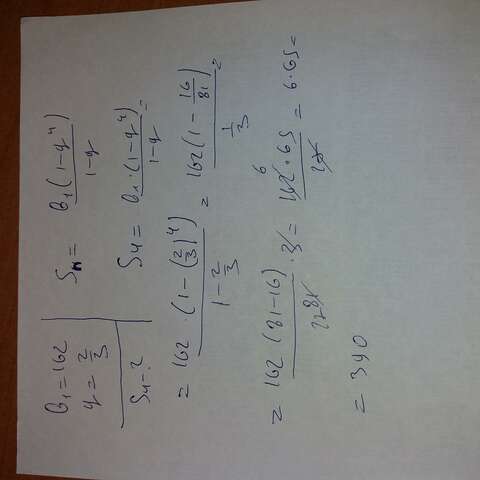 b₁ = 162
q = 2/3
S₄ - ?
Sₙ = b₁(1-qⁿ)/1-q
S₄ = b₁·(1-q⁴)/1-q =
= 162·(1-(2/3)⁴)/1-2/3 = 162(1-16/81)/1/3 =
= 162(81-16)/81 27 · 3 = 162 6 · 65/27 = 6·65 =
= 390